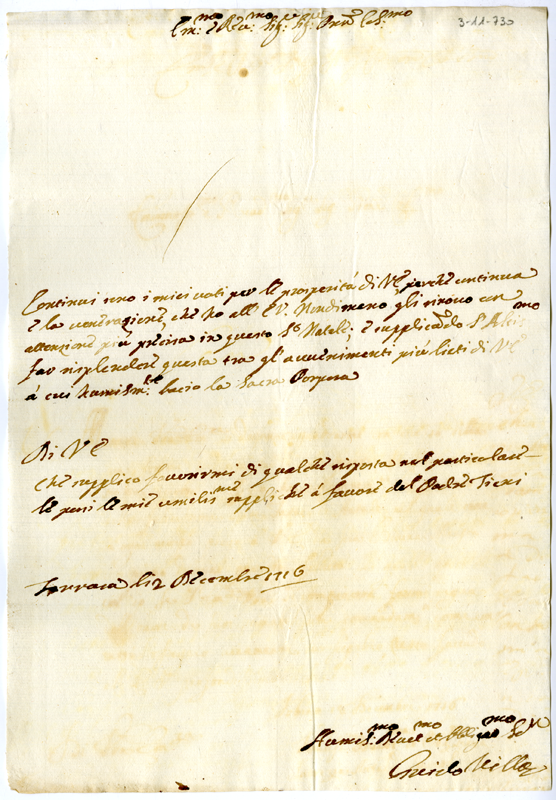 Em:mo e Rev:mo Sig:r Sig:r Pron Col:mo
3-11-730
Continui sono i miei voti per le prosperità di VE perche continua
e la venerazione, che ho all'E.V. Nondimeno gli rinovo con
attenzione più precisa in questo S:o Natale; e supplicando S. Altissmo
far risplendere questa tra gl'avvenimenti più lieti di VE
à cui humilm:te bacio la Sacra Porpora
Di VE
Che supplico favorirmi di qualche risposta nel particolare
le porsi le mie umiliss:me suppliche à favore del Padre
Ferrara li 2 Decembre 1716
Humils:mo Dev:mo et Obligat:mo Se:re
Guido Villa